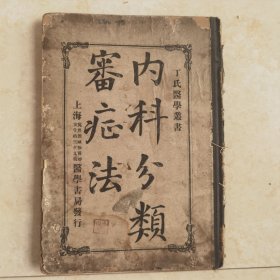 丁氏醫學叢書
內科分類
審症法
上海
醫學書局發行